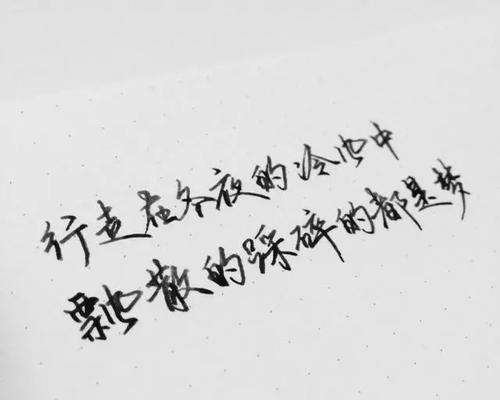 行走在冬夜的冷风中
飘散的踩碎的都是梦